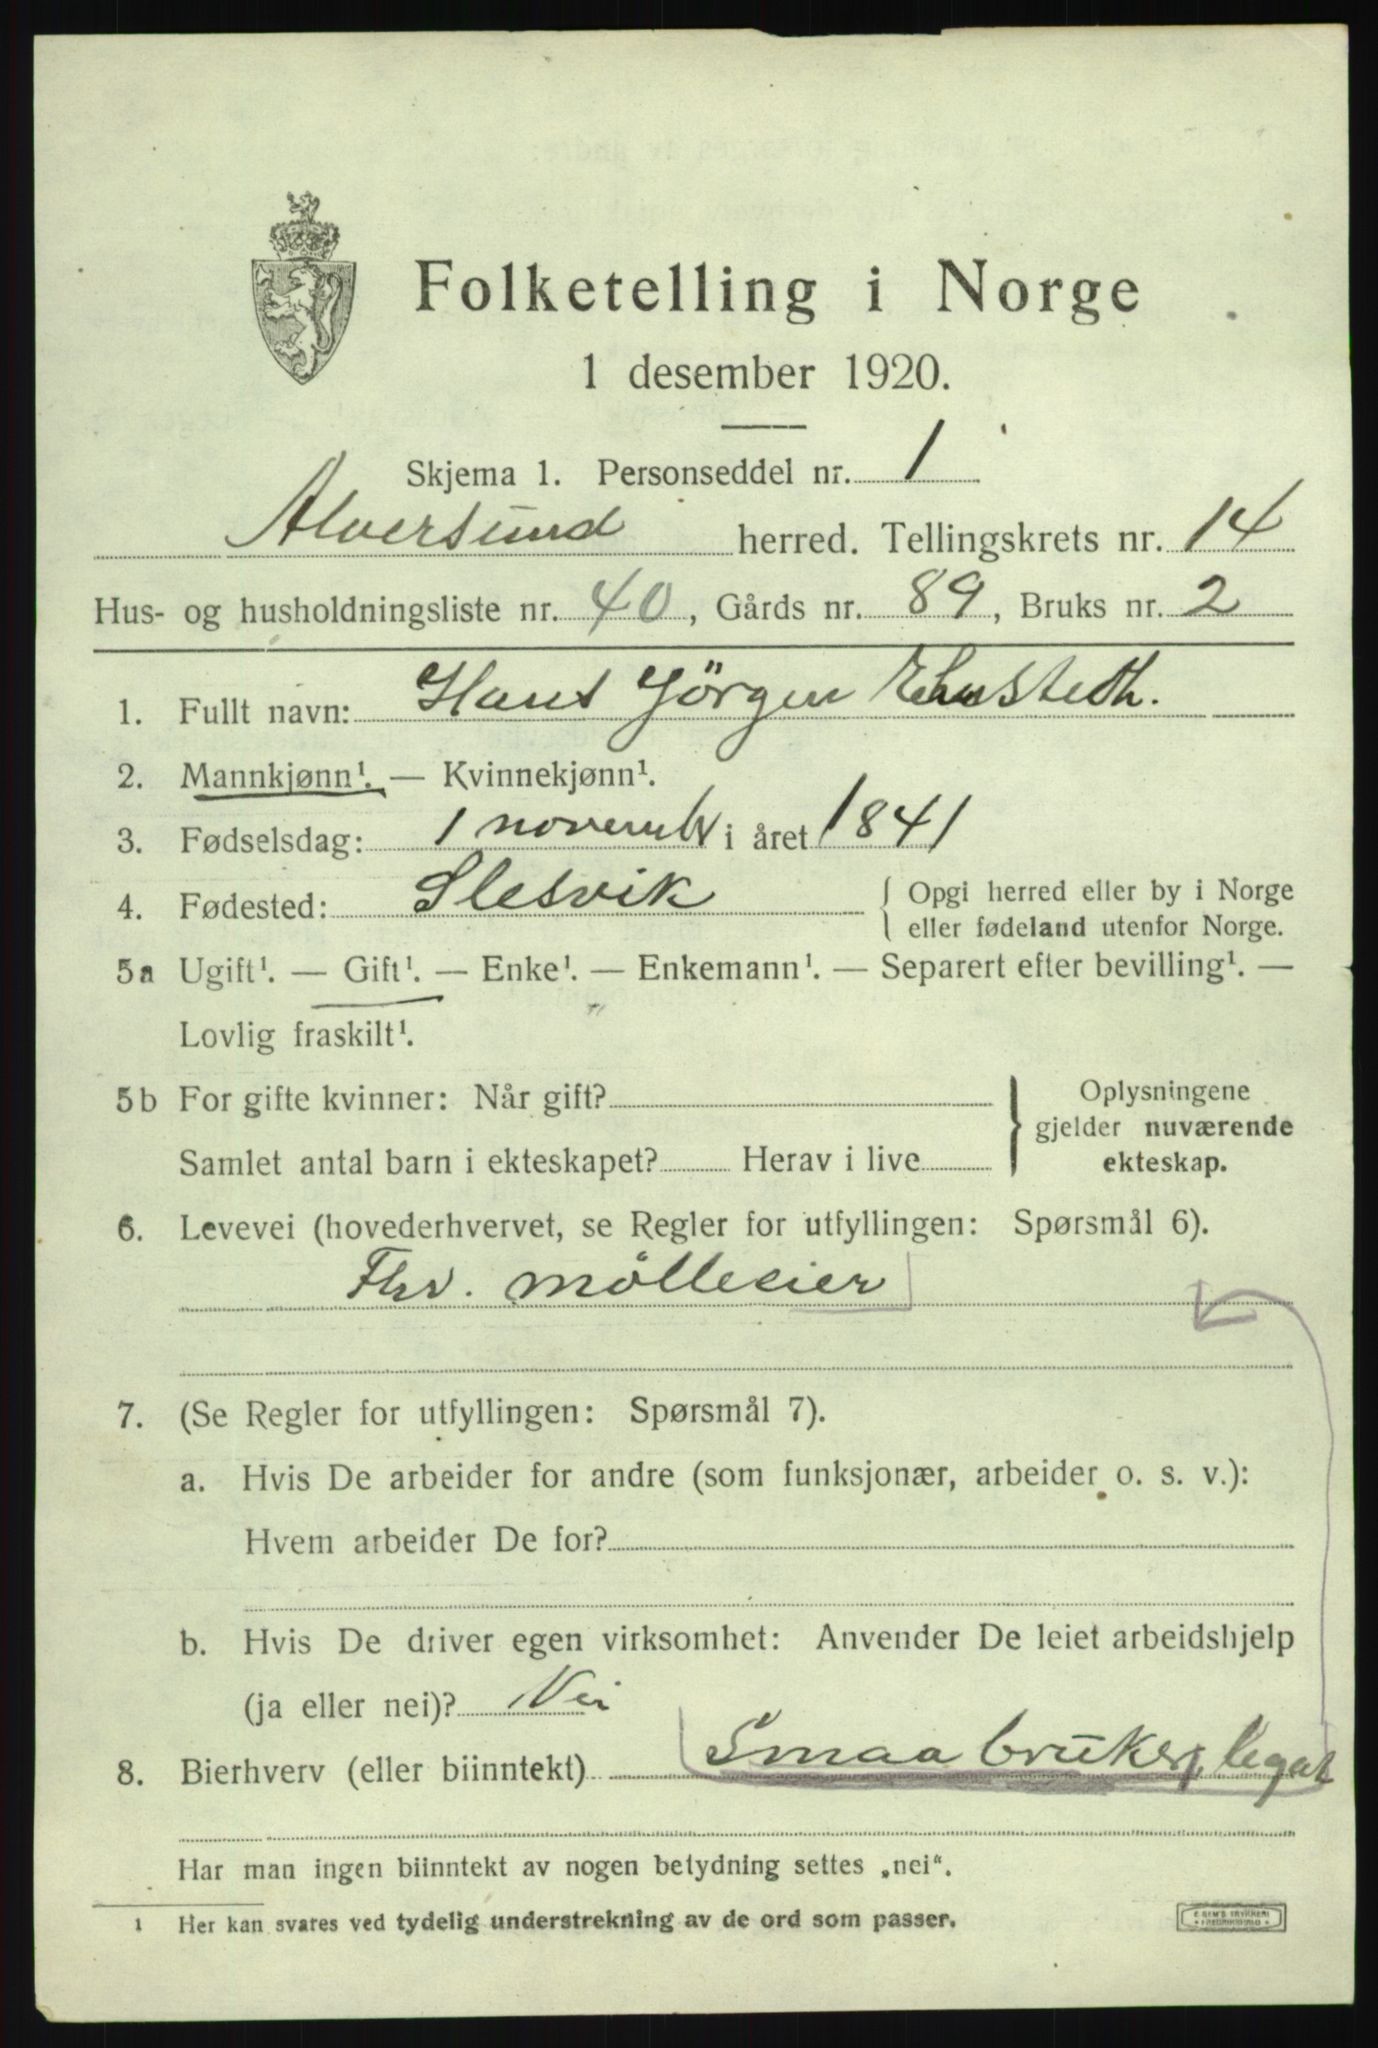 Folketelling i Norge
1 desember 1920.
Skjema 1. Personseddel nr. 1
Alversund herred. Tellingskrets nr. 14
Hus- og husholdningsliste nr. 40, Gårds nr. 89, Bruks nr. 2
1. Fullt navn: Hans Jörgen
2. Mannkjønn¹. — Kvinnekjønn¹.
3. Fødselsdag: 1 novembr i året 1841
4. Fødested: Slesvik { Opgi herred eller by i Norge
eller fødeland utenfor Norge.
5a Ugift¹. — Gift¹. — Enke¹. — Enkemann¹. — Separert efter bevilling¹. —
Lovlig fraskilt¹.
5b For gifte kvinner: Når gift? } Oplysningene
gjelder nuværende
Samlet antal barn i ekteskapet? Herav i live ekteskap.
6. Levevei (hovederhvervet, se Regler for utfyllingen: Spørsmål 6).
Fhv. mölleeier
7. (Se Regler for utfyllingen: Spørsmål 7).
a. Hvis De arbeider for andre (som funksjonær, arbeider o. s. v.):
Hvem arbeider De for?
b. Hvis De driver egen virksomhet: Anvender De leiet arbeidshjelp
(ja eller nei)? Nei
8. Bierhverv (eller biinntekt) Smaabruker, legat
Har man ingen biinntekt av nogen betydning settes „nei“.
¹ Her kan svares ved tydelig understrekning av de ord som passer.